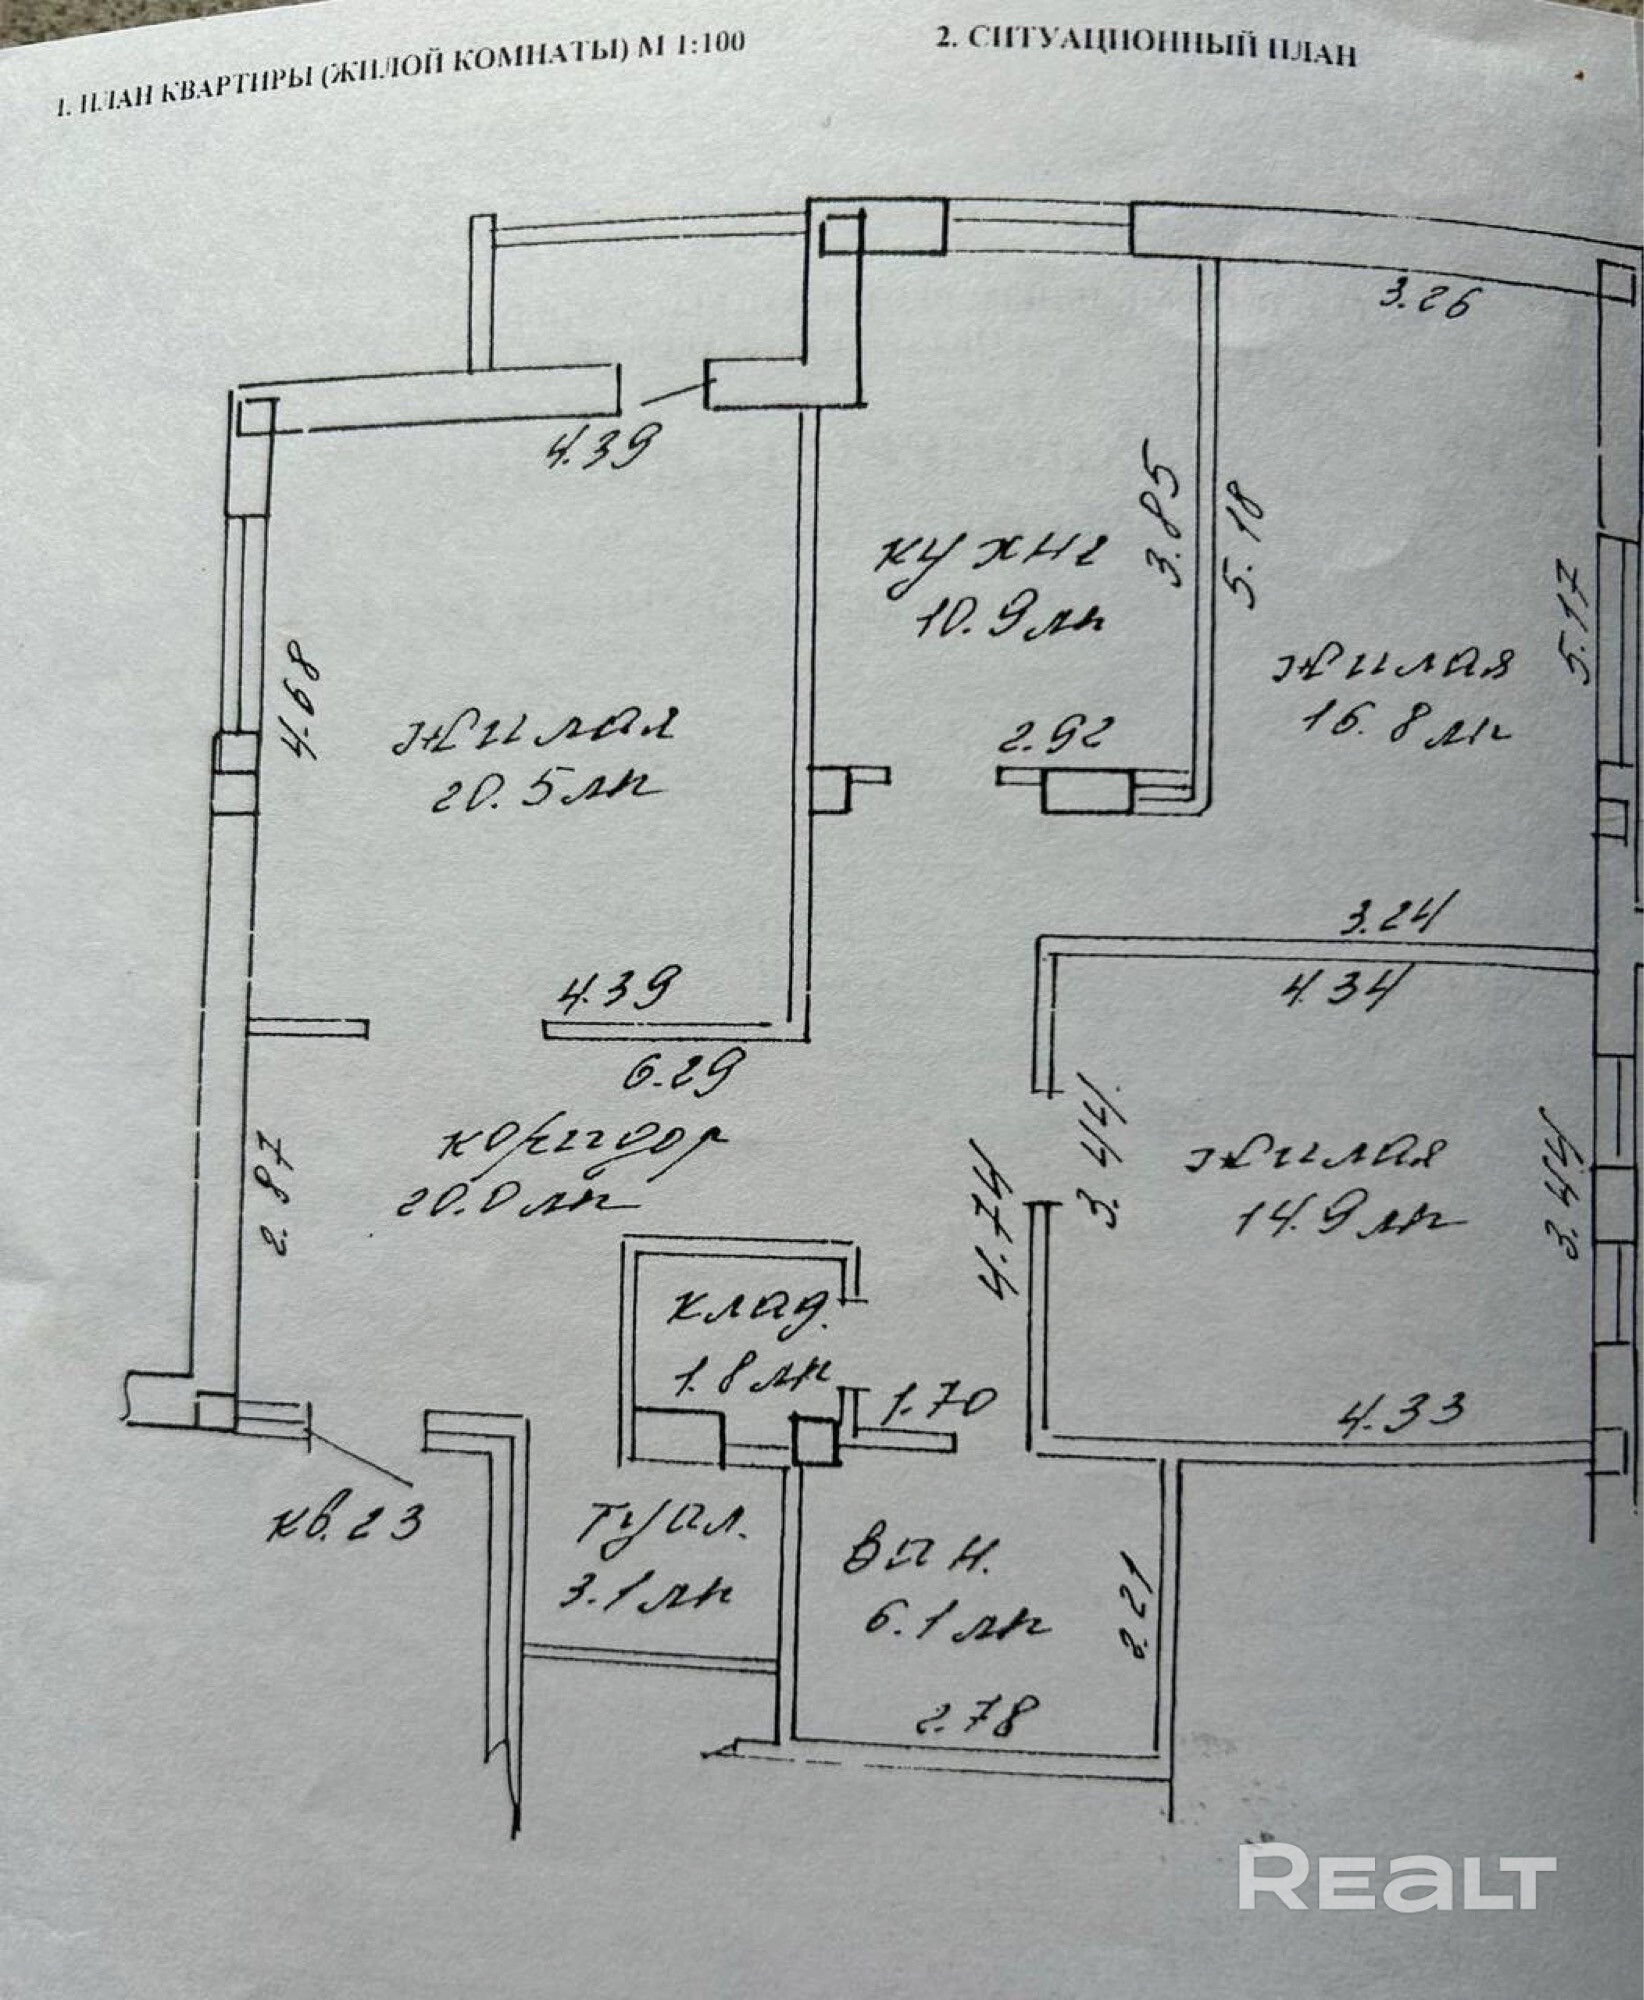 1. ПЛАН КВАРТИРЫ (ЖИЛОЙ КОМНАТЫ) М 1:100
2. СИТУАЦИОННЫЙ ПЛАН
3.26
4.39
3.85
5.18
кухня
10.9 м²
5.17
жилая
16.8 м²
4.68
жилая
20.5 м²
2.92
3.24
4.34
4.39
6.29
коридор
20.0 м²
2.87
4.74
3.44
жилая
14.9 м²
3.44
клад.
1.8 м²
1.70
4.33
кв. 23
туал.
3.1 м²
ван.
6.1 м²
2.21
2.78
REALT